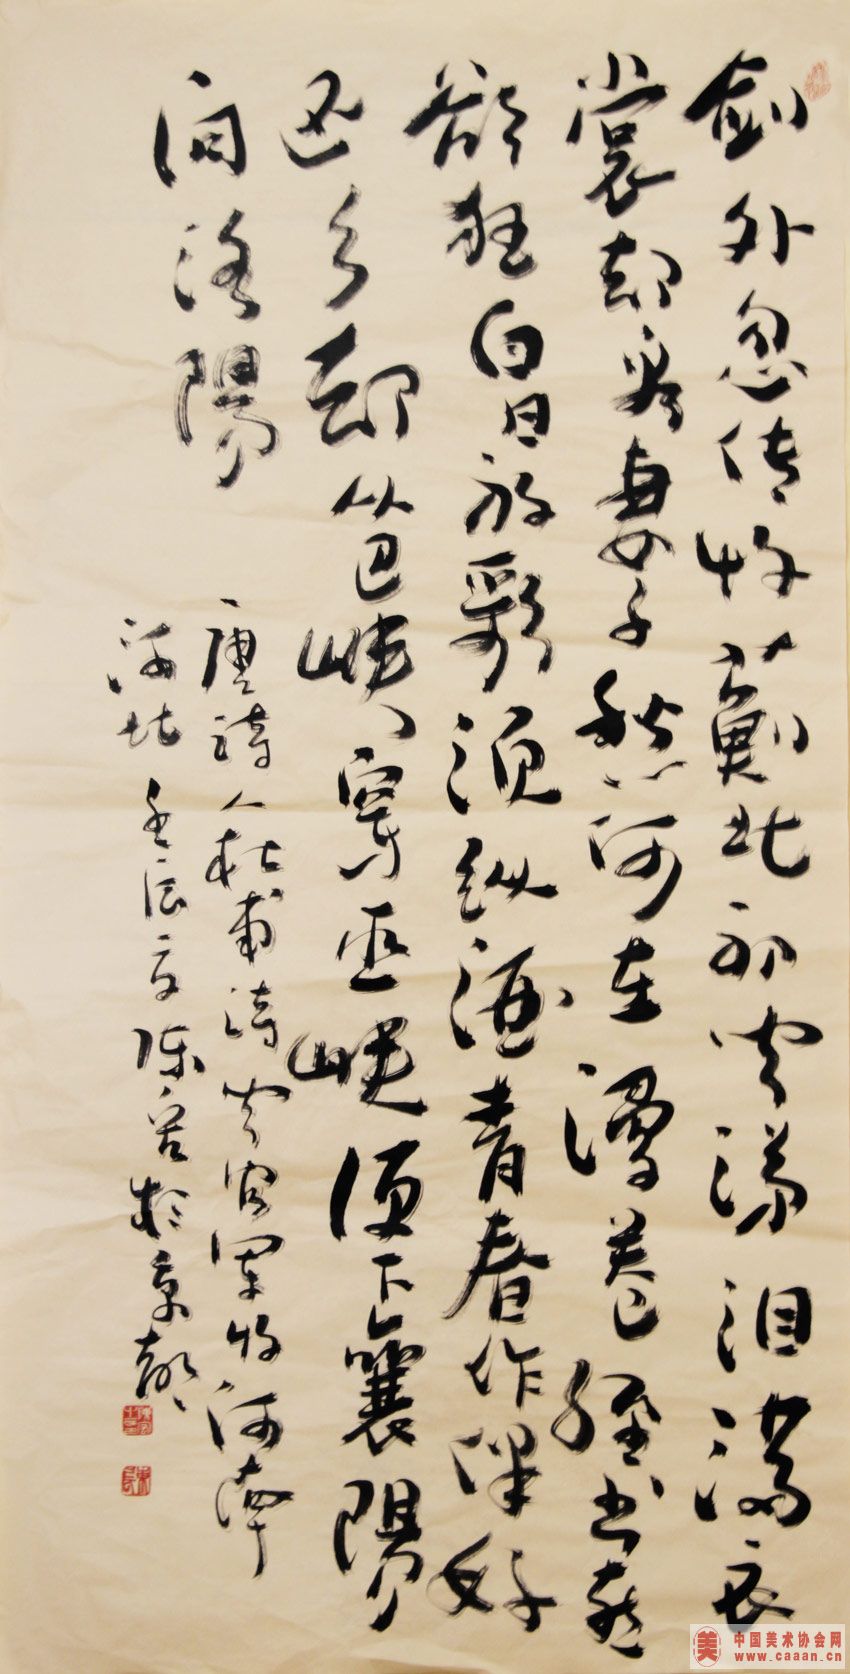 剑外忽传收蓟北初闻涕泪满衣
裳却看妻子愁何在漫卷经书喜
欲狂白日放歌须纵酒青春作伴好
还乡却从巴峡穿巫峡便下襄陽
向洛陽
唐诗人杜甫诗闻官军收河南
河北 壬辰夏陈於京都
中国美术协会网
www.caaan.cn